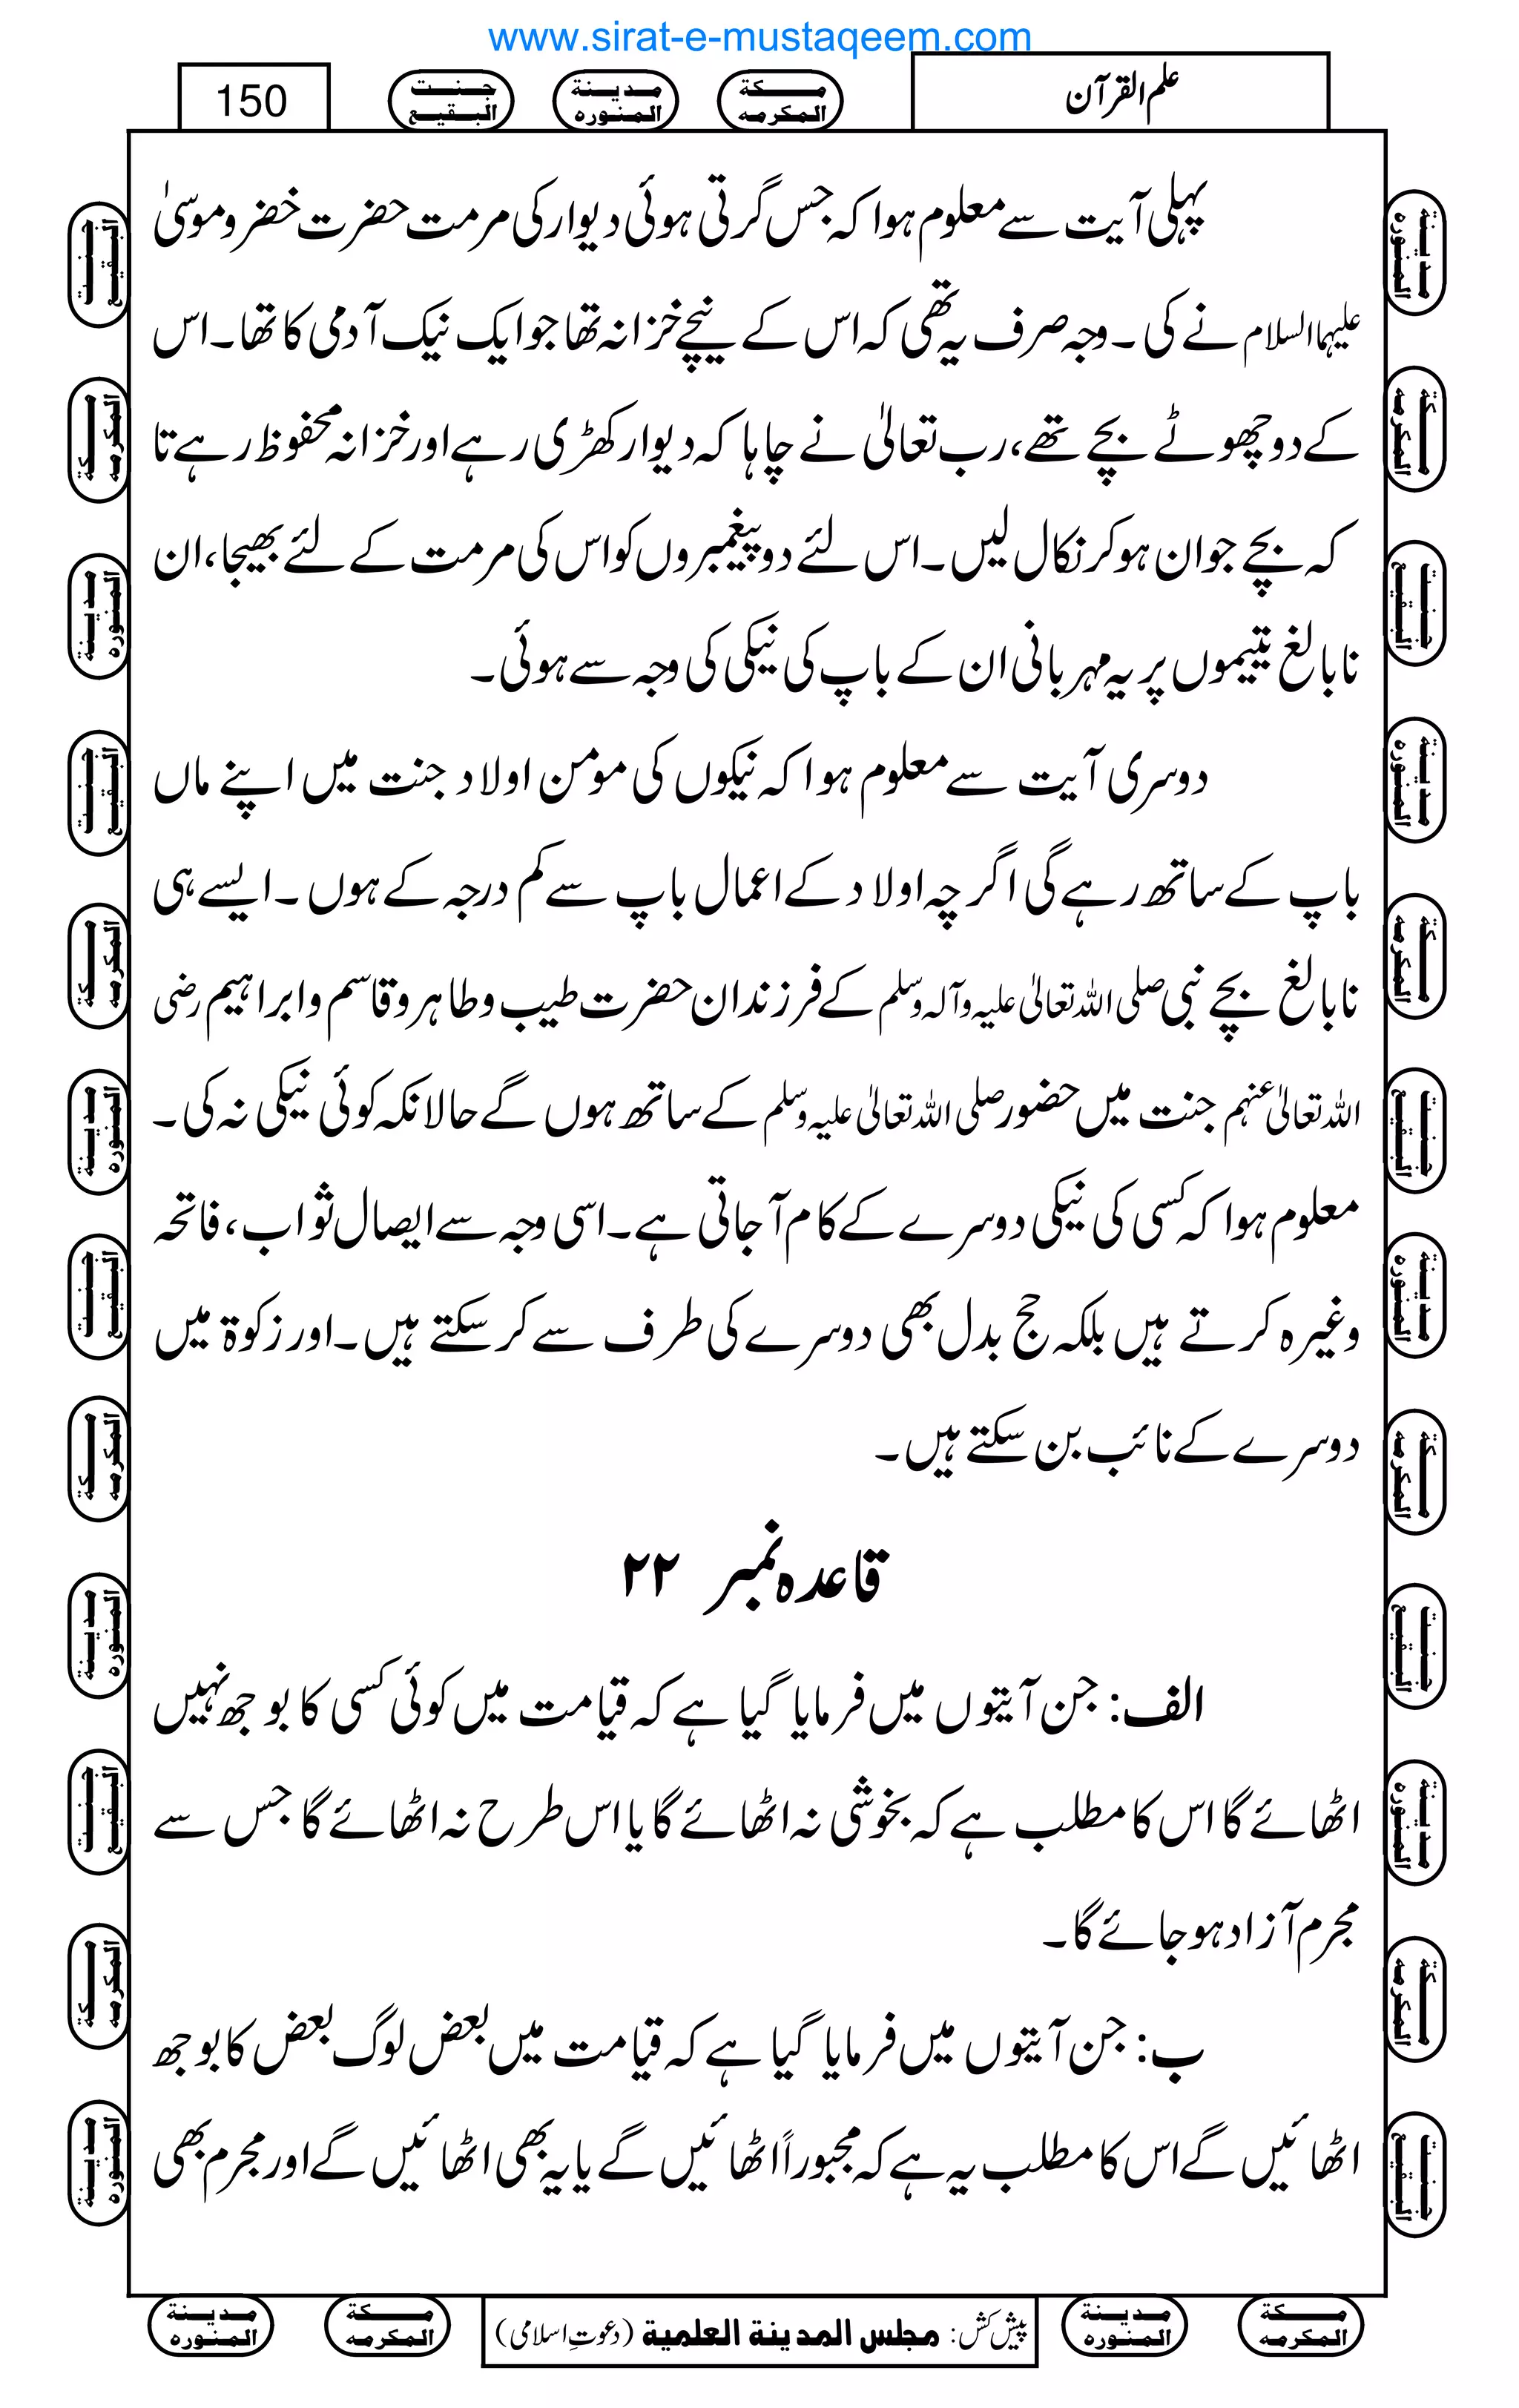 www.sirat-e-mustaqeem.com
علم القرآن
مكة المكرمه
مدينة المنوره
جنت البقيع
150
پہلی آیت سے معلوم ہوا کہ جس گرتی ہوئی دیوار کی مرمت حضرت خضر و موسیٰ
علیہما السلام نے کی۔ وجہ صرف یہ تھی کہ اس کے نیچے خزانہ تھا جو ایک نیک آدمی کا تھا۔ اس
کے دو چھوٹے بچے تھے، رب تعالیٰ نے چاہا کہ دیوار کھڑی رہے اور خزانہ محفوظ رہے تا
کہ بچے جوان ہو کر نکال لیں۔ اس لئے دو پیغمبروں کو اس کی مرمت کے لئے بھیجا، ان
نابالغ یتیموں پر یہ مہربانی ان کے باپ کی نیکی کی وجہ سے ہوئی۔
دوسری آیت سے معلوم ہوا کہ نیکوں کی مومن اولاد جنت میں اپنے ماں
باپ کے ساتھ رہے گی اگر چہ اولاد کے اعمال باپ سے کم درجہ کے ہوں۔ ایسے ہی
نابالغ بچے نبی صلی اللہ تعالیٰ علیہ وآلہ وسلم کے فرزندان حضرت طیب و طاہر و قاسم و ابراہیم رضی
اللہ تعالیٰ عنہم جنت میں حضور صلی اللہ تعالیٰ علیہ وسلم کے ساتھ ہوں گے حالانکہ کوئی نیکی نہ کی۔
معلوم ہوا کہ کسی کی نیکی دوسرے کے کام آجاتی ہے۔ اسی وجہ سے ایصال ثواب، فاتحہ
وغیرہ کرتے ہیں بلکہ حج بدل بھی دوسرے کی طرف سے کر سکتے ہیں۔ اور زکوۃ میں
دوسرے کے نائب بن سکتے ہیں۔
قاعدہ نمبر ۲۲
الف: جن آیتوں میں فرمایا گیا ہے کہ قیامت میں کوئی کسی کا بوجھ نہیں
اٹھائے گا اس کا مطلب ہے کہ بخوشی نہ اٹھائے گا یا اس طرح نہ اٹھائے گا جس سے
مجرم آزاد ہو جائے گا۔
ب: جن آیتوں میں فرمایا گیا ہے کہ قیامت میں بعض لوگ بعض کا بوجھ
اٹھائیں گے اس کا مطلب یہ ہے کہ مجبوراً اٹھائیں گے یا یہ بھی اٹھائیں گے اور مجرم بھی
مكة المكرمه
مدينة المنوره
پیش کش: مجلس المدينة العلمية (دعوتِ اسلامی)
مكة المكرمه
مدينة المنوره